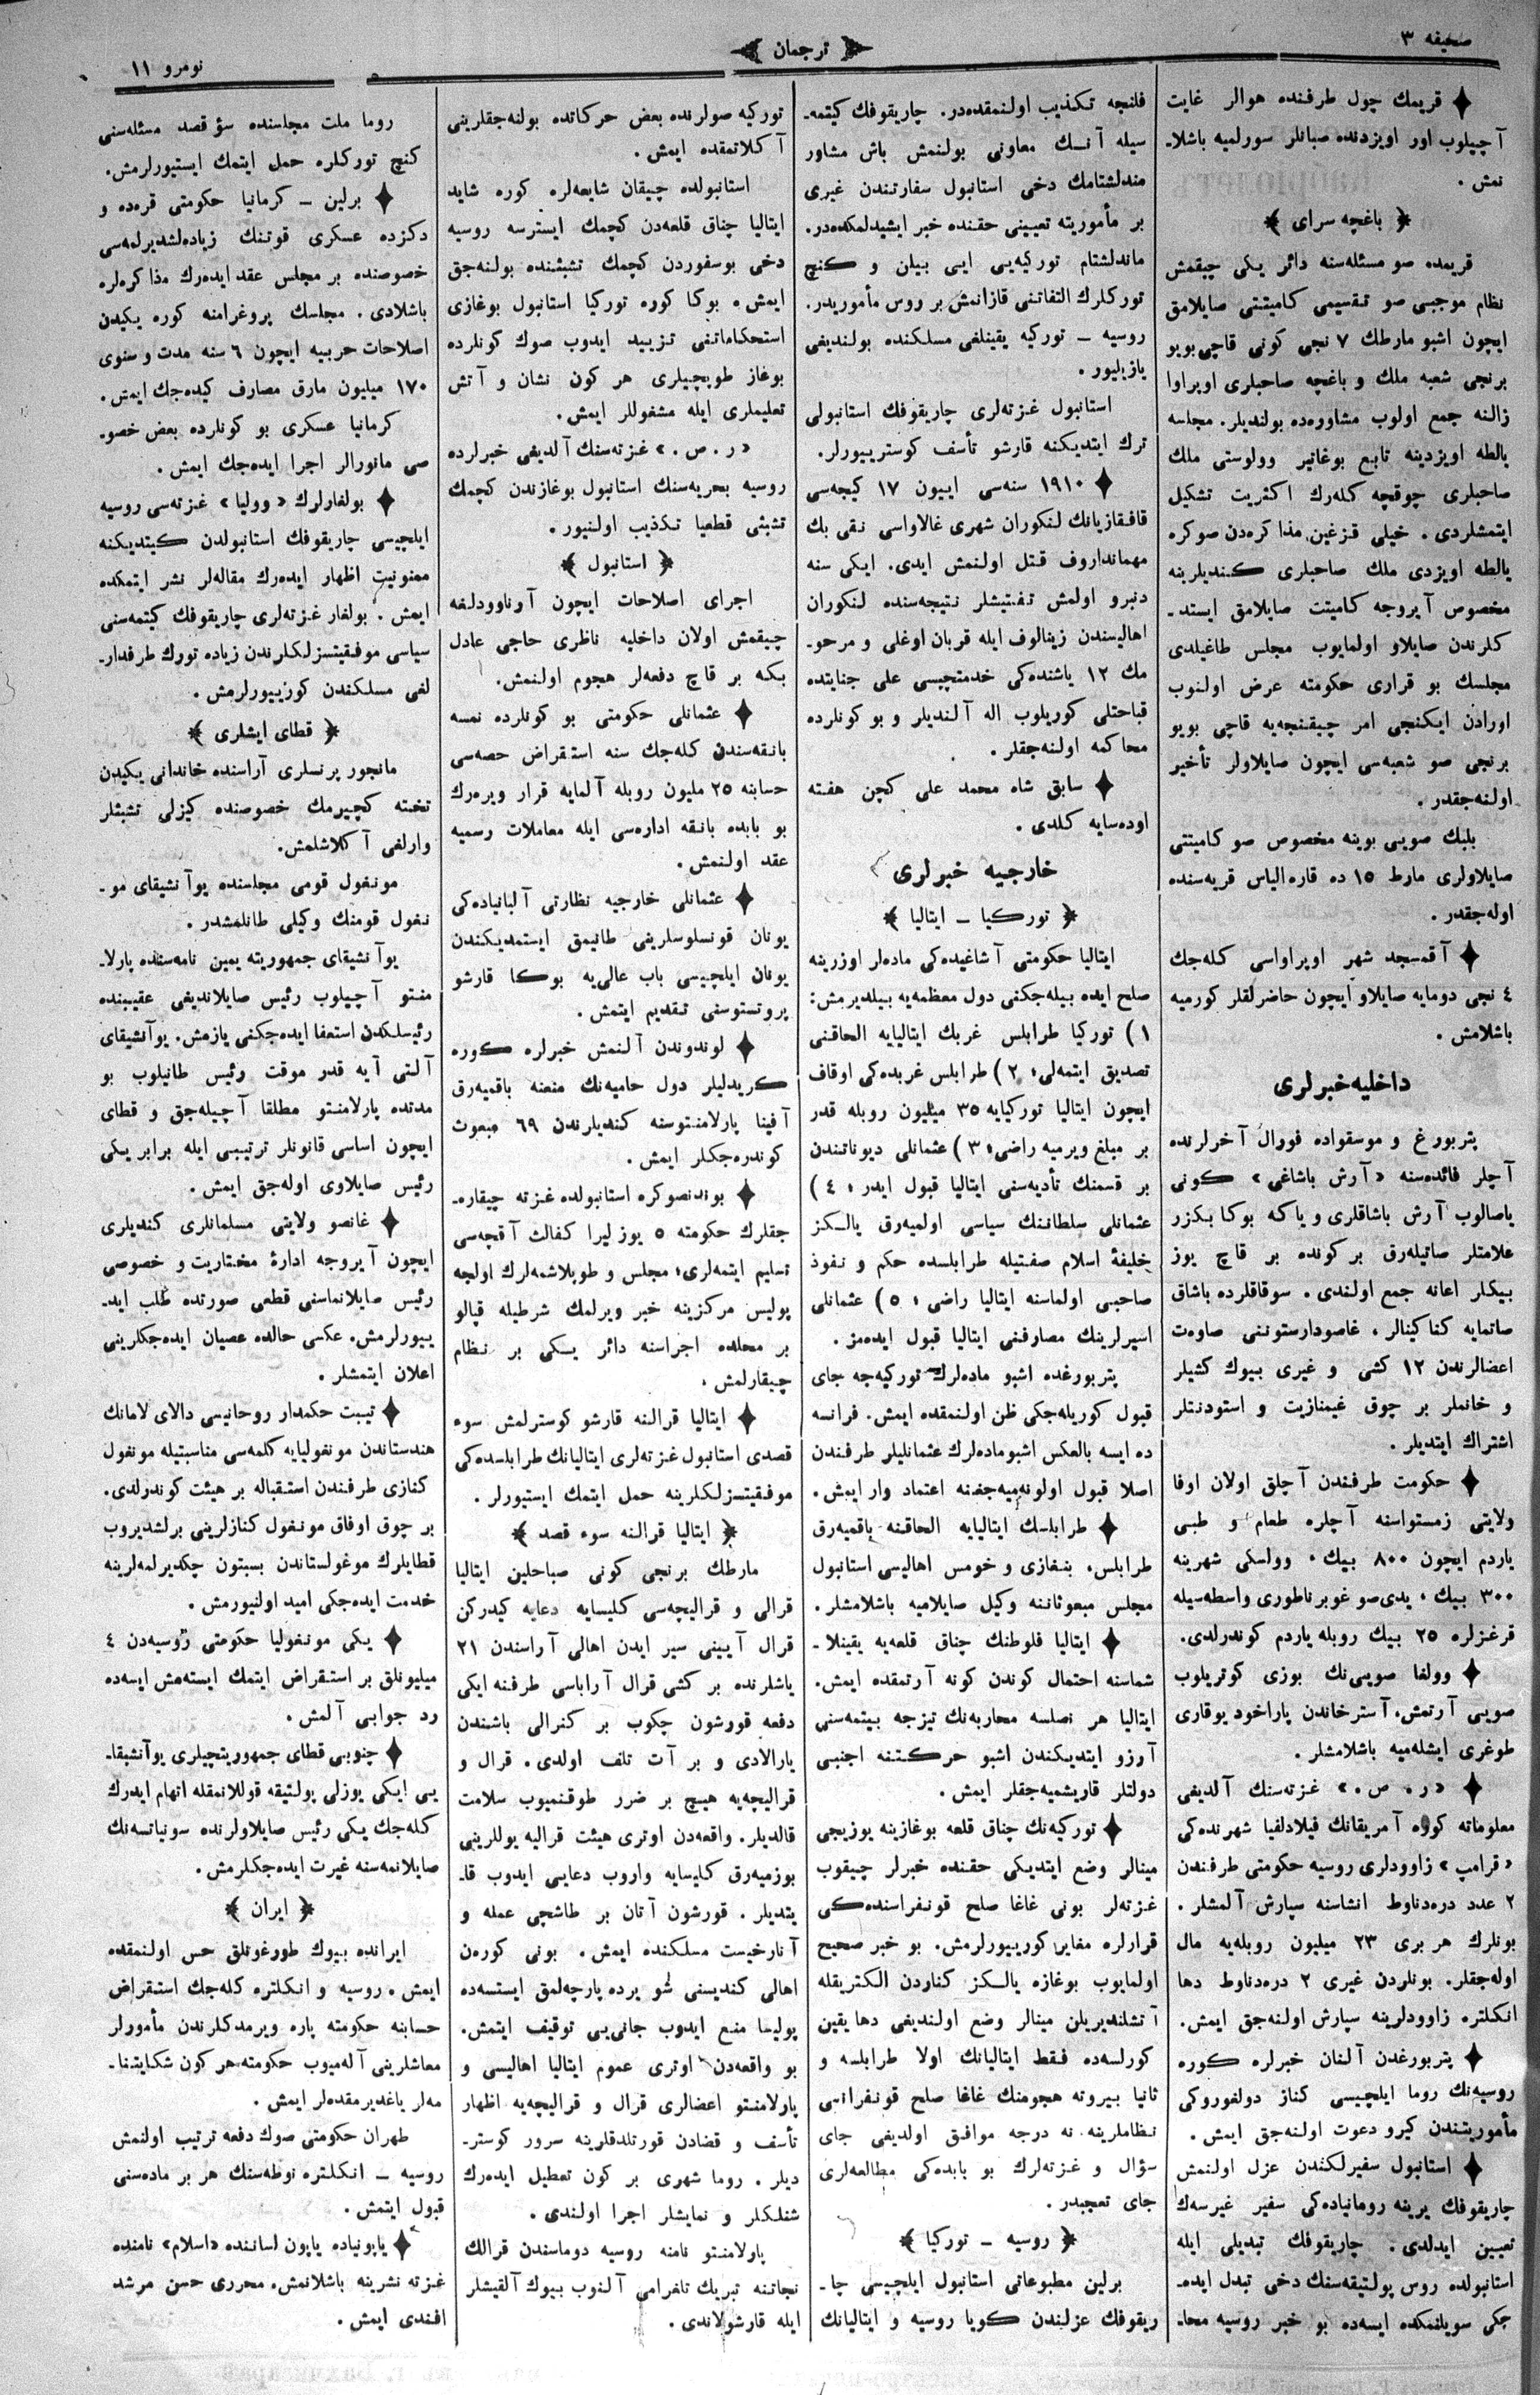 صحیفه ٣
ترجمان
نومرو ١١
قریمك چول طرفنده هوالر غایت
آچیلوب اور اویزدنده صبانلر سورلمیه باشلا۔
نمش .
﴿ باغچه سرای ﴾
قریمده صو مسئله‌سنه دائر یكی چیقمش
نظام موجبی صو تقسیمی كامیتتی صایلامق
ایچون اشبو مارطك ٧ نجی كونی قاچی بویو
برنجی شعبه ملك و باغچه صاحبلری اوپراوا
زالنه جمع اولوب مشاوره‌ده بولندیلر. مجلسه
یالطه اویزدینه تابع بوغاتیر وولوستی ملك
صاحبلری چوقچه كله‌رك اكثریت تشكیل
ایتمشلردی . خیلی قزغین مذاكره‌دن صوكره
یالطه اویزدی ملك صاحبلری كندیلرینه
مخصوص آیروجه كامیتت صایلامق ایستد۔
كلرندن صایلاو اولمایوب مجلس طاغیلدی
مجلسك بو قراری حكومته عرض اولنوب
اورادن ایكنجی امر چیقنجه‌یه قاچی بویو
برنجی صو شعبه‌سی ایچون صایلاولر تأخیر
اولنه‌جقدر .
بلبك صویی بوینه مخصوص صو كامیتتی
صایلاولری مارط ١٥ ده قاره‌الیاس قریه‌سنده
اوله‌جقدر .
آقمسجد شهر اوپراواسی كله‌جك
٤ نجی دومایه صایلاو ایچون حاضرلقلر كورمیه
باشلامش .
داخلیه خبرلری
پتربورغ و موسقواده فورال آخرلرنده
آچلر فائده‌سنه «آرش باشاغی» كونی
یاصالوب آرش باشاقلری و یاكه بوكا بكزر
علامتلر صاتیله‌رق بر كونده بر قاچ یوز
بیكلر اعانه جمع اولندی . سوقاقلرده باشاق
صاتمایه كناكینالر ، غاصودارستوننی صاوه‌ت
اعضالرندن ١٢ كشی و غیری بیوك كشیلر
و خانملر بر چوق غیمنازیت و استودنتلر
اشتراك ایتدیلر .
حكومت طرفندن آچلق اولان اوفا
ولایتی زمستواسنه آچلره طعام و طبی
یاردم ایچون ٨٠٠ بیك ، وواسكی شهرینه
٣٠٠ بیك ، یدی‌صو غوبرناطوری واسطه‌سیله
قرغزلره ٢٥ بیك روبله یاردم كوندرلدی.
وولغا صویی‌نك بوزی كوتریلوب
صویی آرتمش. آسترخاندن پاراخود یوقاری
طوغری ایشله‌میه باشلامشلر .
«ر. ص.» غزته‌سنك آلدیغی
معلوماته كوره آمریقانك فیلادلفیا شهرنده‌كی
«قرامپ» زاوودلری روسیه حكومتی طرفندن
٢ عدد دره‌دناوط انشاسنه سپارش آلمشلر .
بونلرك هر بری ٢٣ میلیون روبله‌یه مال
اوله‌جقلر. بونلردن غیری ٢ دره‌دناوط دها
انكلتره زاوودلرینه سپارش اولنه‌جق ایمش.
پتربورغدن آلنان خبرلره كوره
روسیه‌نك روما ایلچیسی كناز دولغوروكی
مأموریتندن كیرو دعوت اولنه‌جق ایمش .
استانبول سفیرلكندن عزل اولنمش
چاریقوفك یرینه رومانیاده‌كی سفیر غیرسه‌ك
تعیین ایدلدی. چاریقوفك تبدیلی ایله
استانبولده روس پولتیقه‌سنك دخی تبدل ایده۔
جكی سویلنمكده ایسه‌ده بو خبر روسیه محا۔
فلنجه تكذیب اولنمقده‌در. چاریقوفك كیتمه۔
سیله آنك معاونی بولنمش باش مشاور
مندلشتامك دخی استانبول سفارتندن غیری
بر مأموریته تعیینی حقنده خبر ایشیدلمكده‌در.
ماندلشتام توركیه‌یی ایی بیلن و كنچ
توركلرك التفاتنی قازانمش بر روس مأموریدر.
روسیه – توركیه یقینلغی مسلكنده بولندیغی
یازیلیور .
استانبول غزته‌لری چاریقوفك استانبولی
ترك ایتدیكنه قارشو تأسف كوستریبورلر.
١٩١٠ سنه‌سی اییون ١٧ كیچه‌سی
قافقازیانك لنكوران شهری غالاواسی نقی بك
مهمانداروف قتل اولنمش ایدی. ایكی سنه
دنبرو اولمش تفتیشلر نتیجه‌سنده لنكوران
اهالیسندن زینالوف ایله قربان اوغلی و مرحو۔
مك ١٢ یاشنده‌كی خدمتچیسی علی جنایتده
قباحتلی كوریلوب اله آلندیلر و بو كونلرده
محاكمه اولنه‌جقلر .
سابق شاه محمد علی كچن هفته
اوده‌سایه كلدی .
خارجیه خبرلری
﴿ توركیا – ایتالیا ﴾
ایتالیا حكومتی آشاغیده‌كی ماده‌لر اوزرینه
صلح ایده بیله‌جكنی دول معظمه‌یه بیلدیرمش:
١) توركیا طرابلس غربك ایتالیایه الحاقنی
تصدیق ایتمه‌لی؛ ٢) طرابلس غربده‌كی اوقاف
ایچون ایتالیا توركیایه ٣٥ میلیون روبله قدر
بر مبلغ ویرمیه راضی؛ ٣) عثمانلی دیوناتندن
بر قسمنك تأدیه‌سنی ایتالیا قبول ایدر؛ ٤)
عثمانلی سلطاننك سیاسی اولمیه‌رق یالكز
خلیفهٔ اسلام صفتیله طرابلسده حكم و نفوذ
صاحبی اولماسنه ایتالیا راضی؛ ٥) عثمانلی
اسیرلرینك مصارفنی ایتالیا قبول ایده‌مز .
پتربورغده اشبو ماده‌لرك توركیه‌جه جای
قبول كوریله‌جكی ظن اولنمقده ایمش. فرانسه
ده ایسه بالعكس اشبو ماده‌لرك عثمانلیلر طرفندن
اصلا قبول اولونمیه‌جغنه اعتماد وار ایمش.
طرابلسك ایتالیایه الحاقنه باقمیه‌رق
طرابلس، بنغازی و خومس اهالیسی استانبول
مجلس مبعوثاننه وكیل صایلامیه باشلامشلر.
ایتالیا فلوطنك چناق قلعه‌یه یقینلا۔
شماسنه احتمال كوندن كونه آرتمقده ایمش.
ایتالیا هر نصلسه محاربه‌نك تیزجه بیتمه‌سنی
آرزو ایتدیكندن اشبو حركتنه اجنبی
دولتلر قاریشمیه‌جقلر ایمش.
توركیه‌نك چناق قلعه بوغازینه یوزیجی
مینالر وضع ایتدیكی حقنده خبرلر چیقوب
غزته‌لر بونی غاغا صلح قونفراسنده‌كی
قرارلره مغایر كورییورلرمش. بو خبر صحیح
اولمایوب بوغازه یالكز كناردن الكتریقله
آتشلندیریلن مینالر وضع اولندیغی دها یقین
كورلسه‌ده فقط ایتالیانك اولا طرابلسه و
ثانیا بیروته هجومنك غاغا صلح قونفرانسی
نظاملرینه نه درجه موافق اولدیغی جای
سؤال و غزته‌لرك بو بابده‌كی مطالعه‌لری
جای تعجبدر .
﴿ روسیه – توركیا ﴾
برلین مطبوعاتی استانبول ایلچیسی چا۔
ریقوفك عزلندن كویا روسیه و ایتالیانك
توركیه صولرنده بعض حركاتده بولنه‌جقلرینی
آكلاتمقده ایمش .
استانبولده چیقان شایعه‌لره كوره شاید
ایتالیا چناق قلعه‌دن كچمك ایسترسه روسیه
دخی بوسفوردن كچمك تشبثنده بولنه‌جق
ایمش . بوكا كوره توركیا استانبول بوغازی
استحكاماتنی تزیید ایدوب صوك كونلرده
بوغاز طوپچیلری هر كون نشان و آتش
تعلیملری ایله مشغوللر ایمش.
«ر. ص.» غزته‌سنك آلدیغی خبرلرده
روسیه بحریه‌سنك استانبول بوغازندن كچمك
تشبثی قطعیا تكذیب اولنیور .
﴿ استانبول ﴾
اجرای اصلاحات ایچون آرناوودلغه
چیقمش اولان داخلیه ناظری حاجی عادل
بكه بر قاچ دفعه‌لر هجوم اولنمش.
عثمانلی حكومتی بو كونلرده نمسه
بانقه‌سندن كله‌جك سنه استقراض حصه‌سی
حسابنه ٢٥ ملیون روبله آلمایه قرار ویره‌رك
بو بابده بانقه اداره‌سی ایله معاملات رسمیه
عقد اولنمش .
عثمانلی خارجیه نظارتی آلبانیاده‌كی
یونان قونسلوسلرینی طانیمق ایستمدیكندن
یونان ایلچیسی باب عالی‌یه بوكا قارشو
پروتستوسنی تقدیم ایتمش .
لوندوندن آلنمش خبرلره كوره
كریدلیلر دول حامیه‌نك منعنه باقمیه‌رق
آفینا پارلامنتوسنه كندیلرندن ٦٩ مبعوث
كوندره‌جكلر ایمش .
بوندنصوكره استانبولده غزته چیقاره۔
جقلرك حكومته ٥ یوز لیرا كفالت آقچه‌سی
تسلیم ایتمه‌لری؛ مجلس و طوپلاشمه‌لرك اولجه
پولیس مركزینه خبر ویرلمك شرطیله قپالو
بر محلده اجراسنه دائر یكی بر نظام
چیقارلمش .
ایتالیا قرالنه قارشو كوسترلمش سوء
قصدی استانبول غزته‌لری ایتالیانك طرابلسده‌كی
موفقیتسزلكلرینه حمل ایتمك ایستیورلر .
﴿ ایتالیا قرالنه سوء قصد ﴾
مارطك برنجی كونی صباحلین ایتالیا
قرالی و قرالیچه‌سی كلیسایه دعایه كیدركن
قرال آیینی سیر ایدن اهالی آراسندن ٢١
یاشلرنده بر كشی قرال آراباسی طرفنه ایكی
دفعه قورشون چكوب بر كنرالی باشندن
یارالادی و بر آت تلف اولدی. قرال و
قرالیچه‌یه هیچ بر ضرر طوقنمیوب سلامت
قالدیلر. واقعه‌دن اوتری هیئت قرالیه یوللرینی
بوزمیه‌رق كلیسایه واروب دعایی ایدوب قا۔
یتدیلر . قورشون آتان بر طاشجی عمله و
آنارخیست مسلكنده ایمش. بونی كوره‌ن
اهالی كندیسنی شو یرده پارچه‌لمق ایستسه‌ده
پولیسا منع ایدوب جانی‌یی توقیف ایتمش.
بو واقعه‌دن اوتری عموم ایتالیا اهالیسی و
پارلامنتو اعضالری قرال و قرالیچه‌یه اظهار
تأسف و قضادن قورتلدقلرینه سرور كوستر۔
دیلر . روما شهری بر كون تعطیل ایده‌رك
شنلكلر و نمایشلر اجرا اولندی .
پارلامنتو نامنه روسیه دوماسندن قرالك
نجاتنه تبریك تلغرامی آلنوب بیوك آلقیشلر
ایله قارشولاندی.
روما ملت مجلسنده سؤ قصد مسئله‌سنی
كنچ توركلره حمل ایتمك ایستیورلرمش.
برلین – كرمانیا حكومتی قره‌ده و
دكزده عسكری قوتنك زیاده‌لشدیرلمه‌سی
خصوصنده بر مجلس عقد ایده‌رك مذاكره‌لره
باشلادی . مجلسك پروغرامنه كوره یكیدن
اصلاحات حربیه ایچون ٦ سنه مدت و سنوی
١٧٠ میلیون مارق مصارف كیده‌جك ایمش.
كرمانیا عسكری بو كونلرده بعض خصو۔
صی مانورالر اجرا ایده‌جك ایمش .
بولغارلرك «وولیا» غزته‌سی روسیه
ایلچیسی چاریقوفك استانبولدن كیتدیكنه
ممنونیت اظهار ایده‌رك مقاله‌لر نشر ایتمكده
ایمش . بولغار غزته‌لری چاریقوفك كیتمه‌سنی
سیاسی موفقیتسزلكلرندن زیاده تورك طرفدار۔
لغی مسلكندن كورییورلرمش .
﴿ قطای ایشلری ﴾
مانجور پرنسلری آراسنده خاندانی یكیدن
تخته كچیرمك خصوصنده كیزلی تشبثلر
وارلغی آكلاشلمش.
مونغول قومی مجلسنده یوآنشیقای مو۔
نغول قومنك وكیلی طانلمشدر .
یوآنشیقای جمهوریته یمین نامه‌سنده پارلا۔
منتو آچیلوب رئیس صایلاندیغی عقیبنده
رئیسلكدن استعفا ایده‌جكنی یازمش. یوآنشیقای
آلتی آیه قدر موقت رئیس طانیلوب بو
مدتده پارلامنتو مطلقا آچیله‌جق و قطای
ایچون اساسی قانونلر ترتیبی ایله برابر یكی
رئیس صایلاوی اوله‌جق ایمش .
غانصو ولایتی مسلمانلری كندیلری
ایچون آیروجه ادارهٔ مختاریت و خصوصی
رئیس صایلانماسنی قطعی صورتده طلب اید۔
ییورلرمش. عكسی حالده عصیان ایده‌جكلرینی
اعلان ایتمشلر .
تیبت حكمدار روحانیسی دالای لامانك
هندستاندن مونغولیایه كلمه‌سی مناسبتیله مونغول
كنازی طرفندن استقباله بر هیئت كوندرلدی.
بر چوق اوفاق مونغول كنازلرینی برلشدیروب
قطایلرك موغولستاندن بسبتون چكدیرلمه‌لرینه
خدمت ایده‌جكی امید اولنیورمش .
یكی مونغولیا حكومتی روسیه‌دن ٤
میلیونلق بر استقراض ایتمك ایسته‌مش ایسه‌ده
رد جوابی آلمش .
جنوبی قطای جمهوریتچیلری یوآنشیقا۔
یی ایكی یوزلی پولتیقه قوللانمقله اتهام ایدرك
كله‌جك یكی رئیس صایلاولرنده سونیاتسه‌نك
صایلانمه‌سنه غیرت ایده‌جكلرمش .
﴿ ایران ﴾
ایرانده بیوك طورغونلق حس اولنمقده
ایمش . روسیه و انكلتره كله‌جك استقراض
حسابنه حكومته پاره ویرمدكلرندن مأمورلر
معاشلرینی آله‌میوب حكومته هر كون شكایتنا۔
مه‌لر یاغدیرمقده‌لر ایمش .
طهران حكومتی صوك دفعه ترتیب اولنمش
روسیه – انكلتره نوطه‌سنك هر بر ماده‌سنی
قبول ایتمش .
یاپونیاده یاپون لساننده «اسلام» نامنده
غزته نشرینه باشلانمش. محرری حسن مرشد
افندی ایمش .